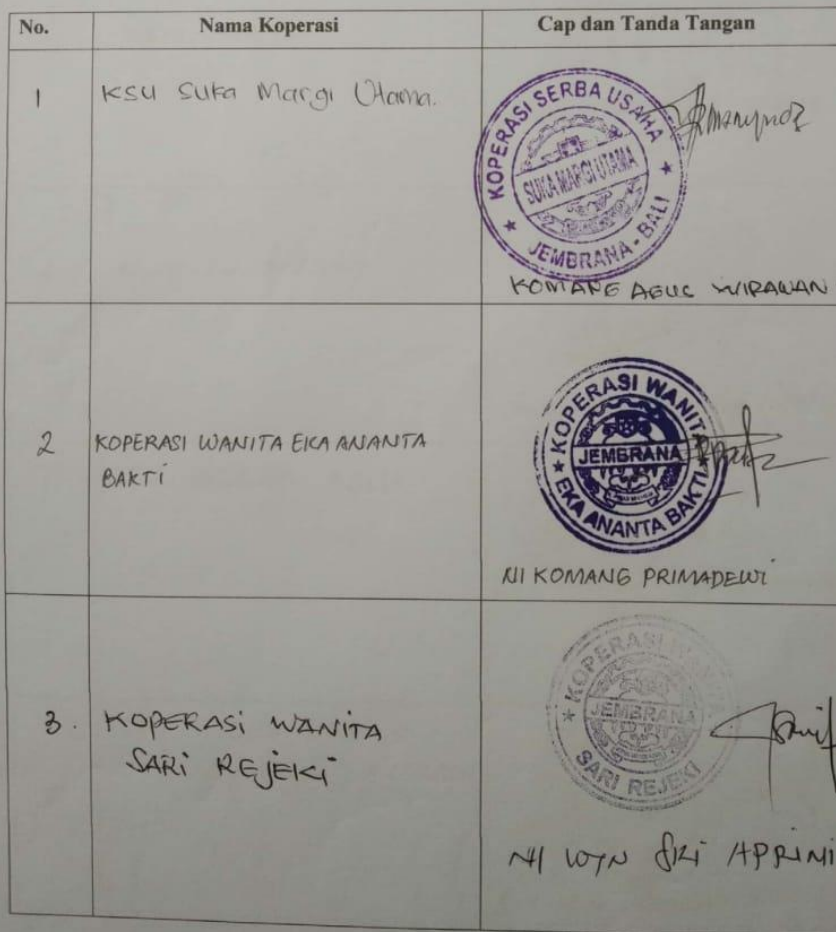 No. Nama Koperasi Cap dan Tanda Tangan
1 KSU Suka Margi Utama.
KOPERASI SERBA USAHA
SUKA MARGI UTAMA
JEMBRANA - BALI
KOMANG AGUS WIRAWAN
2 KOPERASI WANITA EKA ANANTA
BAKTI
KOPERASI WANITA
JEMBRANA
EKA ANANTA BAKTI
NI KOMANG PRIMADEWI
3. KOPERASI WANITA
SARI REJEKI
KOPERASI WANITA
JEMBRANA
SARI REJEKI
NI WYN SRI APRINI